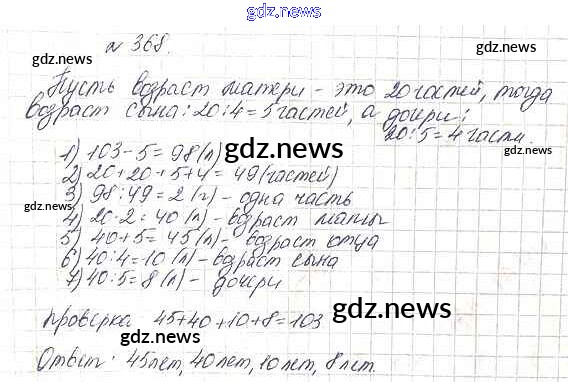 gdz.news
№ 368.
gdz.news gdz.news
Пусть возраст матери - это 20 частей, тогда
возраст сына: 20:4=5 частей, а дочери:
20:5=4 части.
gdz.news
1) 103-5=98(л)
2) 20+20+5+4=49(частей)
3) 98:49=2(г) - одна часть
gdz.news gdz.news
4) 20·2=40(л) - возраст мамы
5) 40+5=45(л) - возраст отца
6) 40:4=10(л) - возраст сына
7) 40:5=8(л) - дочери
gdz.news
Проверка: 45+40+10+8=103
gdz.news gdz.news
Ответ: 45лет, 40лет, 10лет, 8лет.
gdz.news